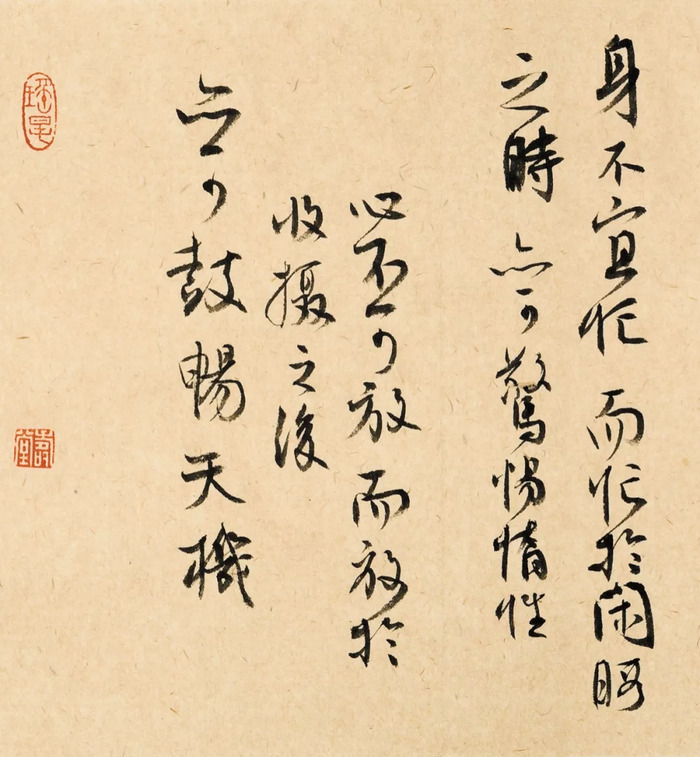 身不宜忙而忙於閑暇
之時亦可驚惕惰性
心不可放而放於
收摄之後
亦可鼓暢天機
壽堂